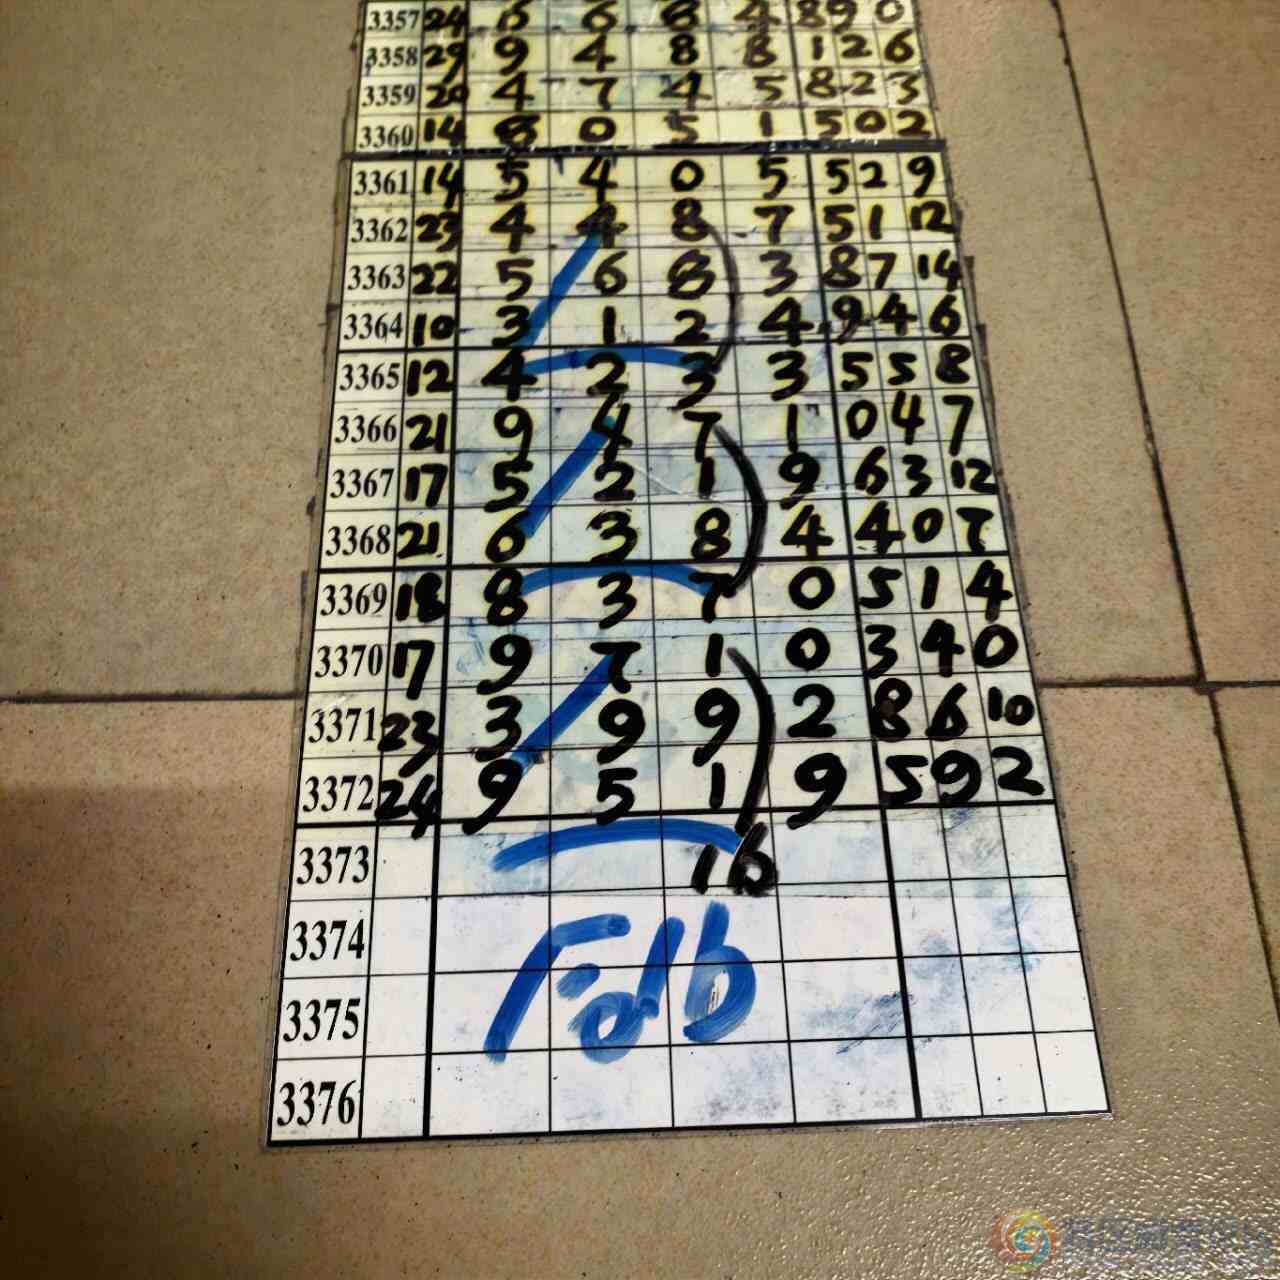 3357 24 6 6 8 4 8 9 0
3358 29 9 4 8 8 1 2 6
3359 20 4 7 4 5 8 2 3
3360 14 8 0 5 1 5 0 2
3361 14 5 4 0 5 5 2 9
3362 23 4 4 8 7 5 1 12
3363 22 5 6 8 3 8 7 14
3364 10 3 1 2 4 9 4 6
3365 12 4 2 3 3 5 5 8
3366 21 9 4 7 1 0 4 7
3367 17 5 2 1 9 6 3 12
3368 21 6 3 8 4 4 0 7
3369 18 8 3 7 0 5 1 4
3370 17 9 7 1 0 3 4 0
3371 23 3 9 9 2 8 6 10
3372 24 9 5 1 9 5 9 2
3373 16
3374
3375
3376